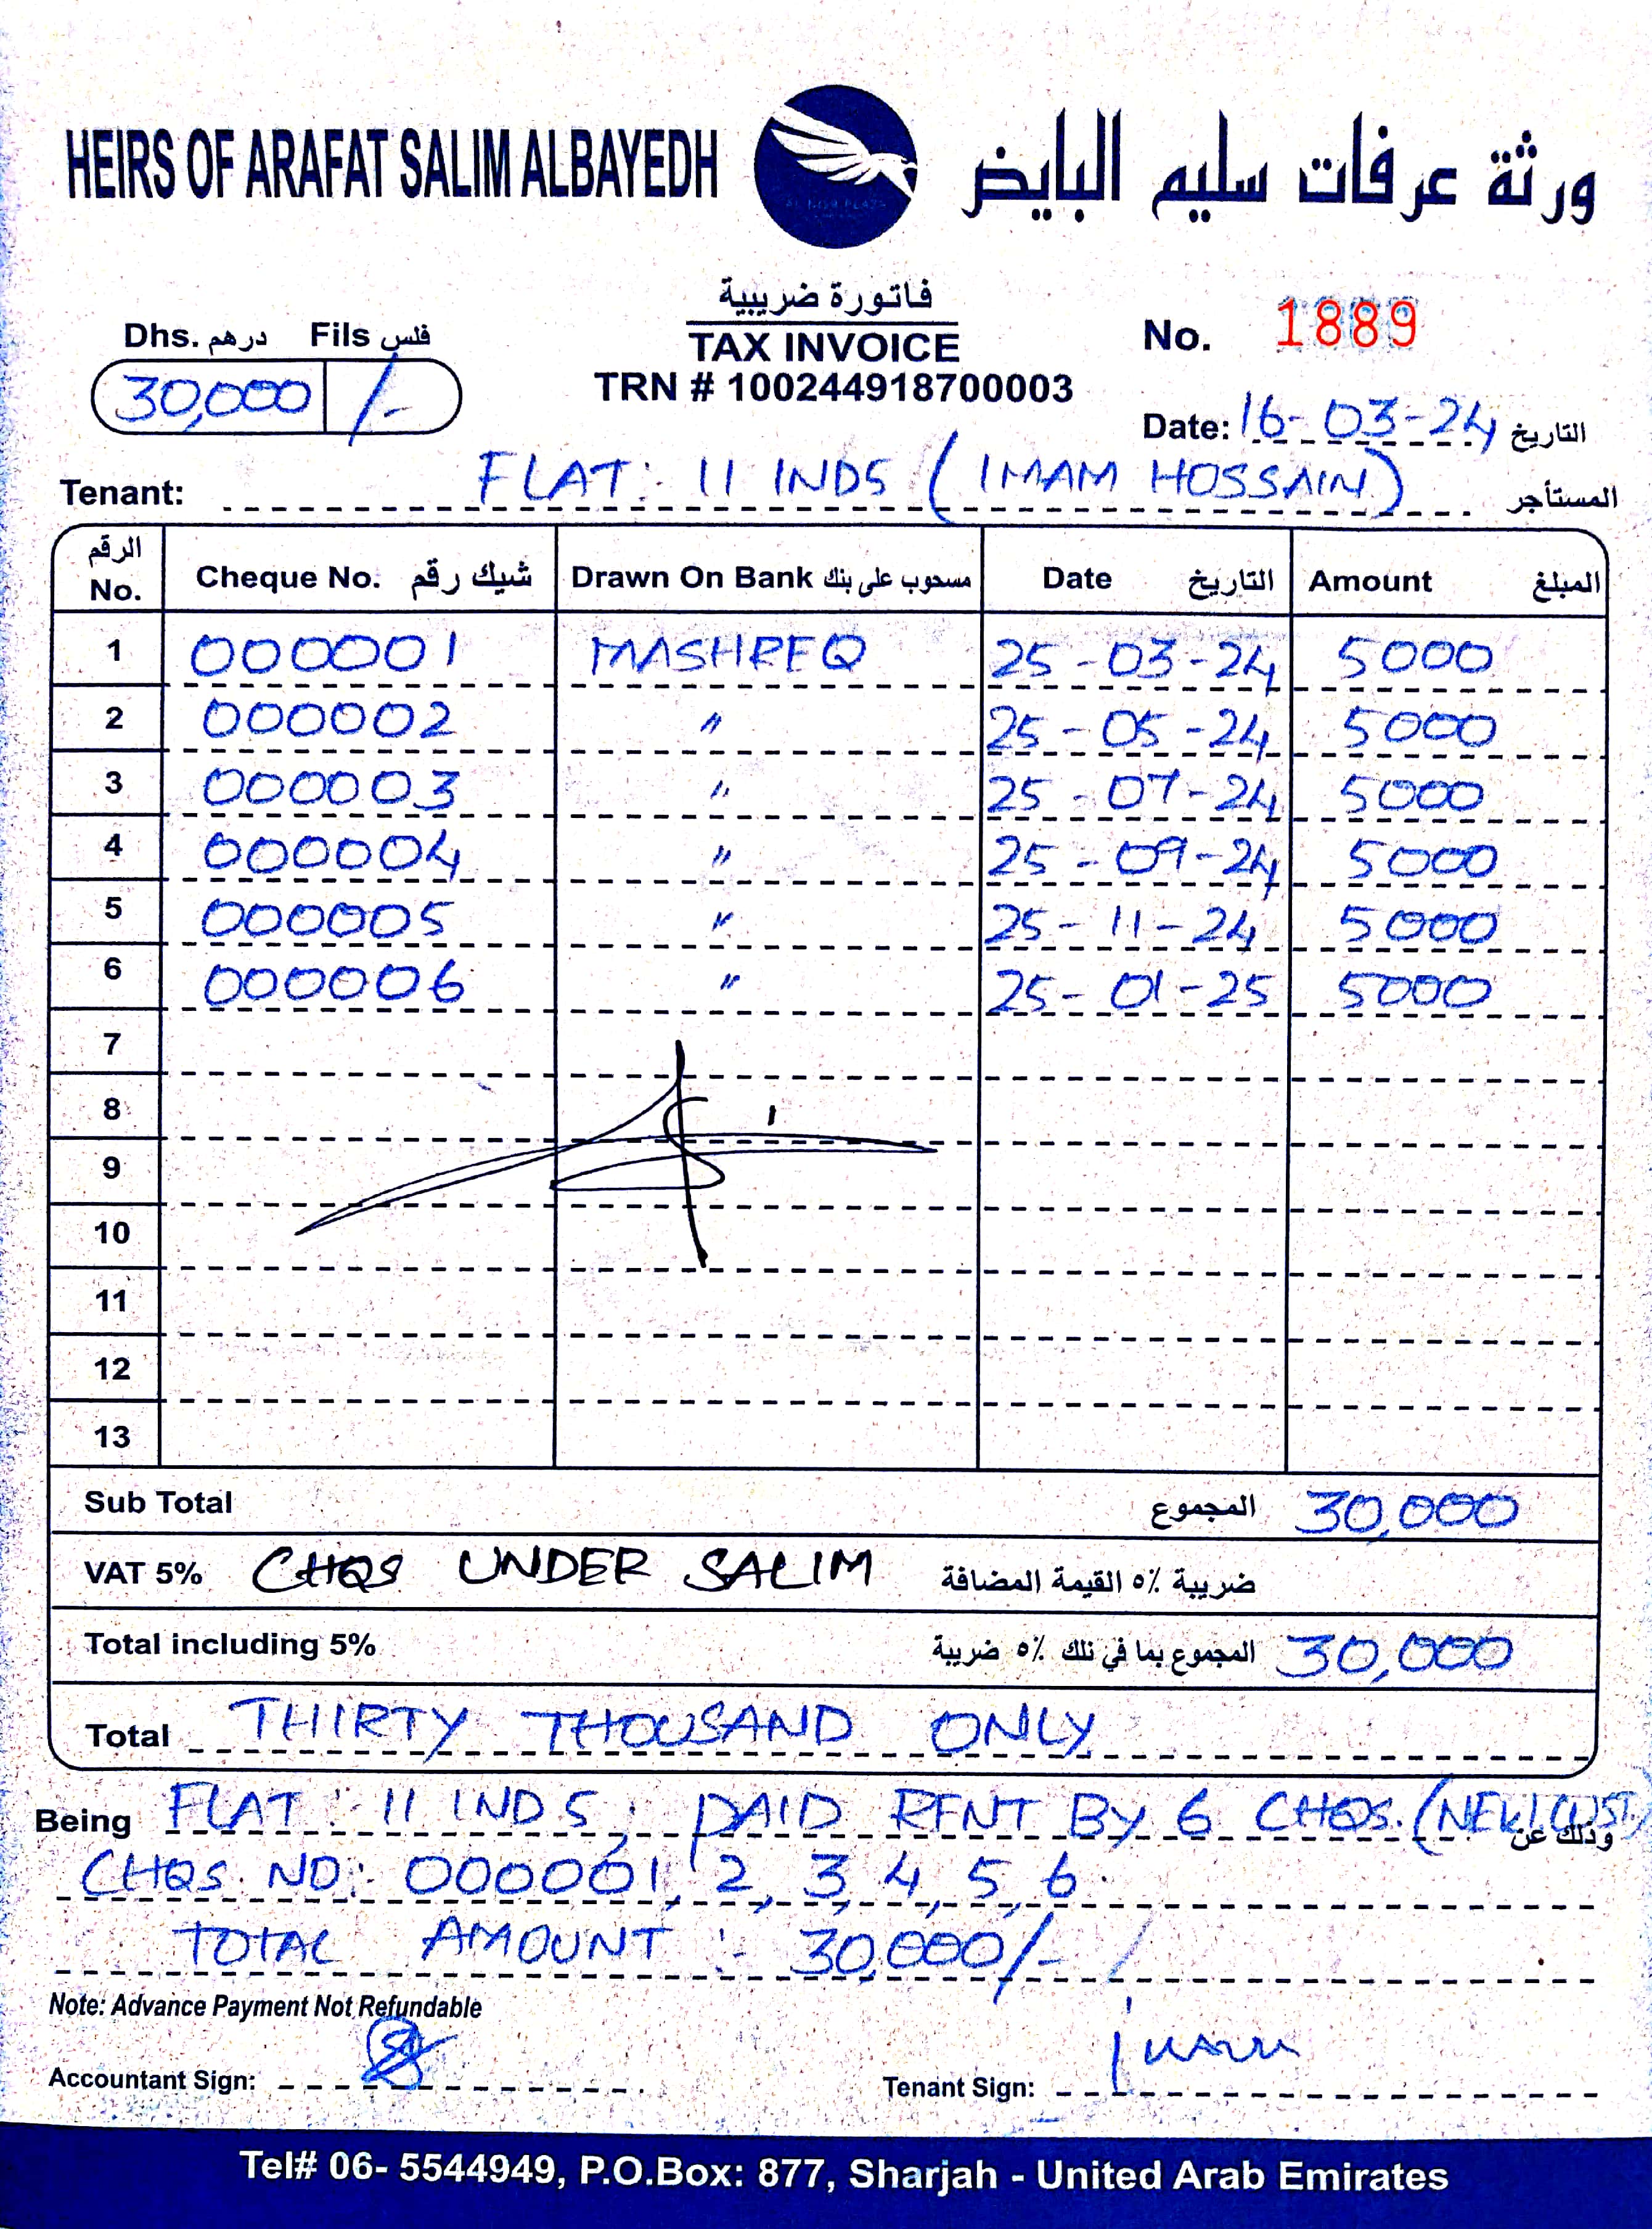 HEIRS OF ARAFAT SALIM ALBAYEDH
ورثة عرفات سليم البايض
فاتورة ضريبية
TAX INVOICE
TRN # 100244918700003
Dhs. درهم Fils فلس
30,000 /-
No. 1889
Date: 16-03-24 التاريخ
Tenant: FLAT: 11 INDS (IMAM HOSSAIN) المستأجر
الرقم No. Cheque No. شيك رقم Drawn On Bank مسحوب على بنك Date التاريخ Amount المبلغ
1 000001 MASHREQ 25-03-24 5000
2 000002 " 25-05-24 5000
3 000003 " 25-07-24 5000
4 000004 " 25-09-24 5000
5 000005 " 25-11-24 5000
6 000006 " 25-01-25 5000
7
8
9
10
11
12
13
Sub Total المجموع 30,000
VAT 5% CHQS UNDER SALIM ضريبة ٥٪ القيمة المضافة
Total including 5% المجموع بما في ذلك ٥٪ ضريبة 30,000
Total THIRTY THOUSAND ONLY
Being FLAT: 11 INDS, PAID RENT BY 6 CHQS. وذلك عن
CHQS. NO: 000001, 2, 3, 4, 5, 6.
TOTAL AMOUNT :- 30,000/-
Note: Advance Payment Not Refundable
Accountant Sign:
Tenant Sign:
Tel# 06- 5544949, P.O.Box: 877, Sharjah - United Arab Emirates